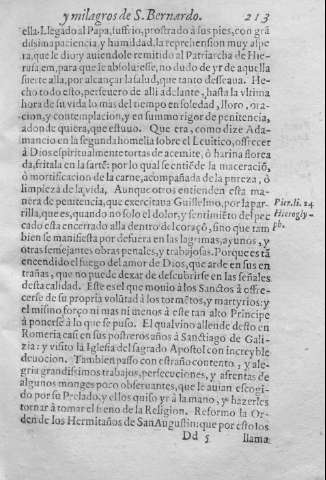 y milagros de S. Bernardo. 213
ella. Llegado al Papa, suffrio, prostrado à sus pies, con grã
dissima paciencia y humildad, la reprehension muy aspe
ra, que le dio: y auiendole remitido al Patriarcha de Hie-
rusalem, para que le absoluiesse, no dudo de yr de aquella
suerte alla, por alcançar la salud, que tanto desseaua. He-
cho todo esto, perseuero de alli adelante, hasta la vltima
hora de su vida lo mas del tiempo en soledad, lloro, ora-
cion, y contemplacion, y en summo rigor de penitencia,
adonde quiera, que estuuo. Que era, como dize Ada-
mancio en la segunda homelia sobre el Leuitico, offrecer
à Dios espiritualmente tortas de azemite, ò harina florea
da, fritala en la sartē: por lo qual se entiēde la maceraciō,
ò mortificacion de la carne, acompañada de la pureza, ò
limpieza de la vida, Aunque otros entienden esta ma-
nera de penitencia, que exercitaua Guillelmo, por la par-
rilla, que es, quando no solo el dolor, y sentimiēto del pec
cado esta encerrado alla dentro del coraçō, sino que tam
bien se manifiesta por defuera en las lagrimas, ayunos, y
otras semejantes obras penales, y trabajosas. Porque esta
encendido el fuego del amor de Dios, que arde en sus en
trañas, que no puede dexar de descubrirse en las señales
desta calidad. Este es el que mouio à los Sanctos à offre-
cerse de su propria volũtad à los tormētos, y martyrios: y
el mismo forço ni mas ni menos à este tan alto Principe
à ponerse à lo que se puso. El qual vino allende desto en
Romeria casi en sus postreros años à Sanctiago de Gali-
zia: y visito la Iglesia del sagrado Apostol con increyble
deuocion. Tambien passo con estraño contento, y ale-
gria grandissimos trabajos, persecuciones, y afrentas de
algunos monges poco obseruantes, que le auian escogi-
do por su Prelado, y ellos quiso yr à la mano, y hazerles
tornar à tomar el freno de la Religion. Reformo la Or-
den de los Hermitaños de San Augustin: que por esto los
Dd 5 llama
Pier. li. 24
Hierogly-
ph.